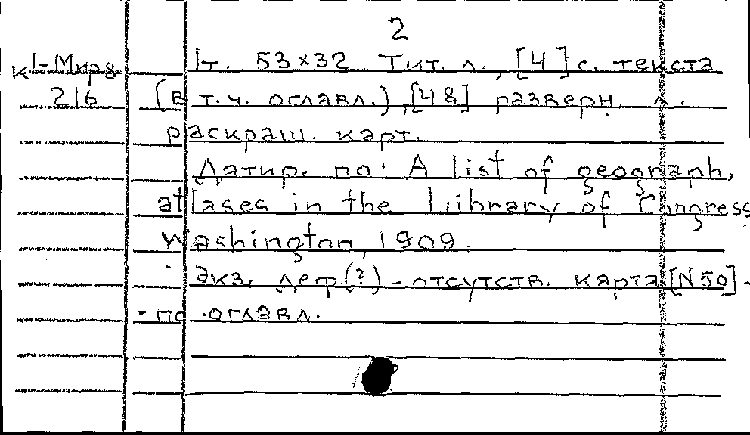 2
К 1-Мир8 1т. 53×32 Тит. л., [4] с. текста
216 (в т.ч. оглавл.), [48] разверн. л.
раскраш. карт.
Датир. по: A list of geograph.
atlases in the Library of Congress
Washington, 1909.
Экз. деф.(?) - отсутств. карта [N50] -
- по оглавл.